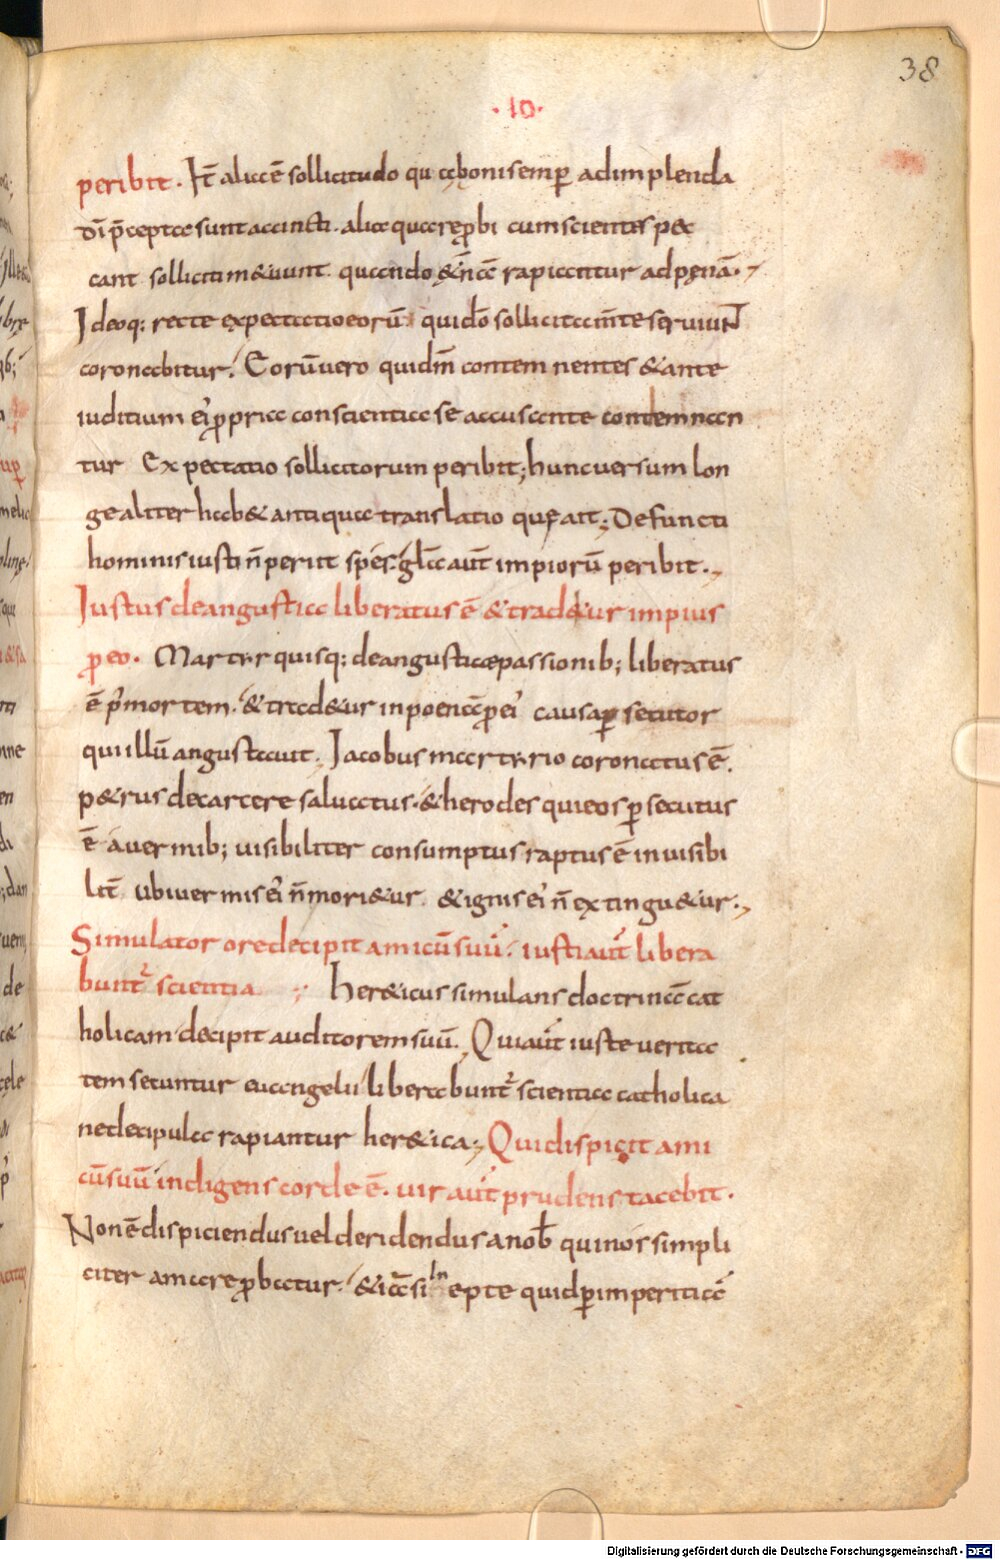 38
·10·
peribit. It̄ alia ē sollicitudo qua boni semp̱ adimplenda
dī p̄cepta sunt accincti. alia qua rep̱bi cum scientes pec
cant sollicitī metuunt quando &̄ nā rapiantur ad pęnā.
Ideoq: recte expectatio eorū qui dō sollicita m̄te seruiuNT
coronabitur. Eorū vero qui dm̄ contemnentes & ante
iuditium ei ꝓpria conscientia se accusante contemnan
tur Expectatio sollicitorum peribit; hunc uersum lon
ge aliter hab& antiqua translatio quę ait; Defuncti
hominis iusti n̄ perit spes. gl̄a aut̄ impiorū peribit.
Iustus de angustia liberatus ē & trad&ur impius
ꝓ eo. Martyr quisq: de angustia passionib; liberatus
ē p̱ mortem. & trad&ur in poena ꝓ ei causa p̱secutor
qui illū angustauit. Iacobus martyrio coronatus ē.
p&rus de carcere saluatus. & herodes qui eos p̱secutus
ē a uermib; uisibiliter consumptus raptus ē inuisibi
lit̄ ubi uermis ei n̄ mori&ur & ignis ei n̄ extingu&ur.
Simulator ore decipit amicū suū. iusti aut̄ libera
bunt᷑ scientia Her&icus simulans doctrinā cat
holicam decipit auditorem suū. Qui aut̄ iuste verita
tem secuntur euangelii liberabunt᷑ scientia catholica
ne decipula rapiantur her&ica; Qui dispicit ami
cū suū indigens corde ē. uir aut̄ prudens tacebit.
Non ē dispiciendus uel deridendus a nob̄ qui nos simpli
citer amare ꝓbatur. & ia si inepte quid p̱ imperitiā
Digitalisierung gefördert durch die Deutsche Forschungsgemeinschaft - DFG